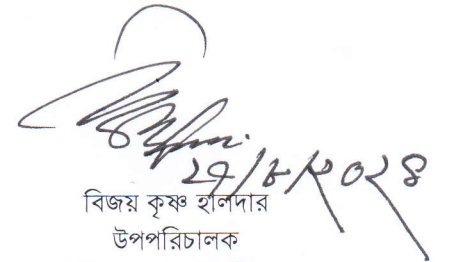 ২৭/৮/২০২৪
বিজয় কৃষ্ণ হালদার
উপপরিচালক